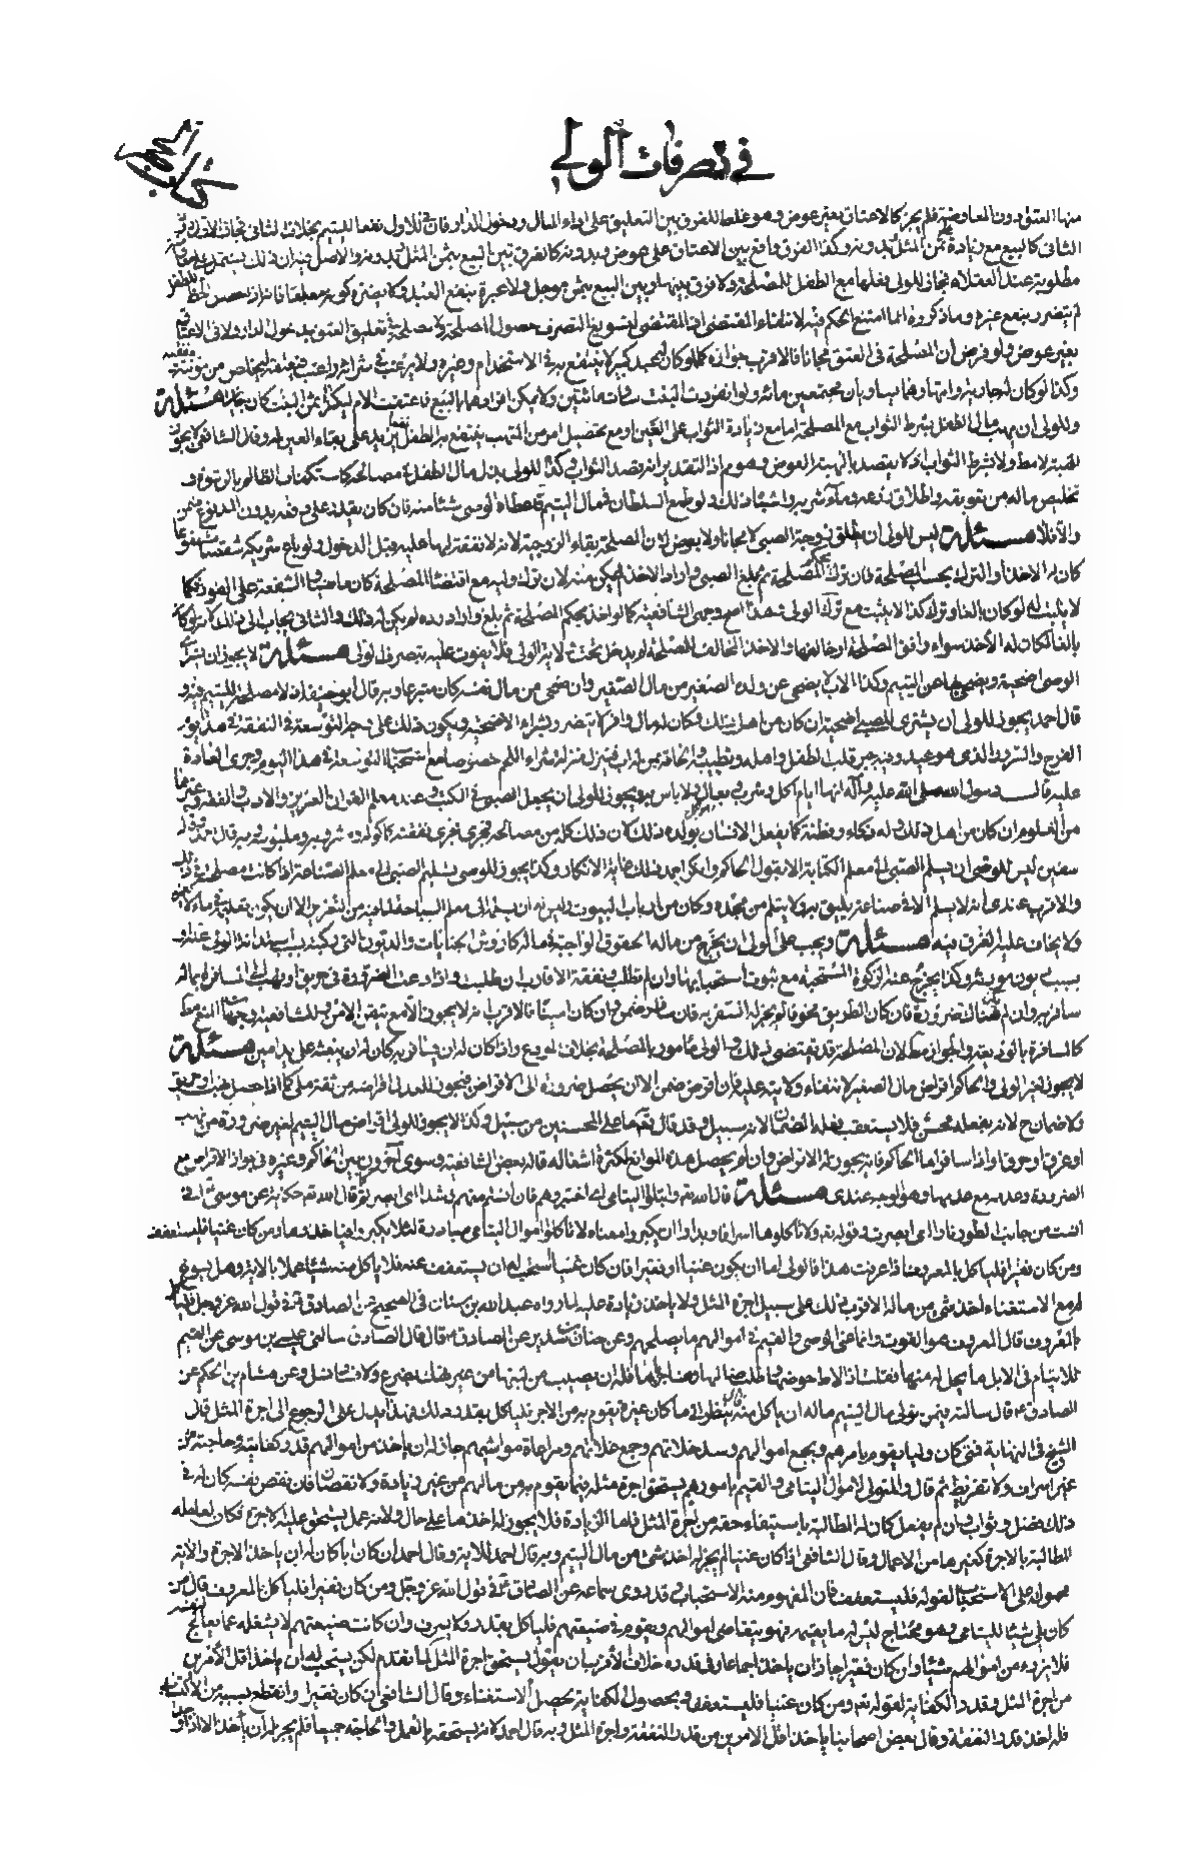 في تصرفات الولي
منها العتق دون المعاوضة فلم يجز كالاعتاق بغير عوض وهو غلط للفرق بين التعليق على اداء المال ودخول الدار فان في الاول نفعا لليتيم بخلاف الثاني
الثاني كالبيع مع زيادة ثمن المثل بدونه وكذا الفرق واقع بين الاعتاق على عوض وبدونه كالفرق بين البيع بثمن المثل بدونه والاصل فيه ان ذلك
مطلوبة عند العقلاء فجاز للولي فعلها مع الطفل للمصلحة ولا فرق بينهما وبين البيع بثمن مؤجل ولا عبرة بنفع العبد ولا
لم يتضرر بنفع غيره وما ذكروه انما امتنع الحكم فيه لانتفاء المقتضي اذ المقتضي لتسويغ التصرف حصول المصلحة ولا مصلحة في تعليق العتق بدخول الدار ولا في الاعتاق
بغير عوض ولو فرض ان المصلحة في العتق مجانا فالاقرب جوازه كما لو كان له عبد كبير لا ينتفع به في الاستخدام وغيره ولا يرغب في شرائه راغب فيعتقه ليخلص من مؤنته
وكذا لو كان له جارية وابنها وهما يساويان مجتمعين مائة ولو انفردت البنت ساوت مائتين ولا يمكن افرادها بالبيع فاعتقت الام ليكثر ثمن البنت كان جائزا مسئلة
وللولي ان يهب مال الطفل بشرط الثواب مع المصلحة اما مع زيادة الثواب على العين او مع تحصيل امر من المتهب ينتفع به الطفل نفعا يزيد على بقاء العين له وقال الشافعي لا يجوز
الهبة لا مطلقا ولا بشرط الثواب اذ لا يقصد بالهبة العوض وهو مم اذ التقدير انه قصد الثواب وكذا للولي بذل مال الطفل في مصالحه كاستكفاف الظالم بالرشوة وفي
تخليص ماله من تعويقه واطلاق زرعه وماء شربه واشباه ذلك ولو طمع السلطان في مال اليتيم فاعطاه الوصي شيئا منه فان كان يقدر على دفعه بدون المدفوع ضمن
والا فلا مسئلة ليس للولي ان يطلق زوجة الصبي لا مجانا ولا بعوض لان المصلحة بقاء الزوجية لانه لا نفقة لها عليه قبل الدخول ولو باع شريكه شقصا مشفوعا
كان له الاخذ او الترك بحسب المصلحة فان ترك بحكم المصلحة ثم بلغ الصبي واراد الاخذ لم يمكن منه لان ترك وليه مع اقتضاء المصلحة كان ماضيا والشفعة على الفور فكما
لا يثبت له لو كان بالغا وترك كذا لا يثبت مع ترك الولي هذا اصح وجهي الشافعية كما لو اخذ بحكم المصلحة ثم بلغ واراد رده لم يكن له ذلك والثاني يجاب الى ذلك
بالغا لكان له الاخذ سواء وافق المصلحة او خالفها والاخذ المخالف للمصلحة لم يدخل تحت ولاية الولي فلا يفوت عليه بتصرف الولي مسئلة لا يجوز ان يشتري
الوصي اضحية ويضحيها عن اليتيم وكذا الاب لا يضحي عن ولده الصغير من مال الصغير وان ضحى من مال نفسه كان متبرعا وبه قال ابو حنيفة اذ لا مصلحة لليتيم فيه و
قال احمد يجوز للولي ان يشتري للصبي اضحية ان كان من اهل ذلك وكان له مال وافر لا يتضرر بشراء الاضحية ويكون ذلك على وجه التوسعة في النفقة في هذا يوم
الفرح والسرور الذي هو عيد وفيه جبر قلب الطفل واهله وتطييبه والحاقه بمن له اب فينزل منزلة شراء اللحم خصوصا مع استحباب التوسعة في هذا اليوم وجري العادة
عليه قال رسول الله صلى الله عليه وآله انها ايام اكل وشرب وبعال ولا باس به ويجوز للولي ان يجعل الصبي في الكتب وعند معلم القرآن العزيز والادب والفقه وغيرها
من العلوم ان كان من اهل ذلك وله ذكاء وفطنة كما يفعل الانسان بولده ذلك لان ذلك كله من مصالحه فجرى مجرى نفقته كماكوله ومشروبه وملبوسه وبه قال احمد وقال
سفين ليس للوصي ان يسلم الصبي الى معلم الكتابة الا بقول الحاكم وانكر احمد ذلك غاية الانكار وكذا يجوز للوصي تسليم الصبي الى معلم الصناعة اذا كانت مصلحته في ذلك
والاقرب عندي انه لا يسلم الا في صناعة يليق به ولا ينثلم من مجده وكان من ارباب البيوت
ولا يخاف عليه الغرق فيه مسئلة ويجب على الولي ان يخرج من ماله الحقوق الواجبة في ماله كاروش الجنايات والديون التي
يركبه بسبب استدانة الولي عنه او
بسبب ديون مورثه وكذا يخرج عنه الزكوة المستحبة مع ثبوت استحبابها وان لم تطلب ونفقة الاقارب ان طلبت واذا دعت الضرورة في حريق او نهب الى المسافرة بماله
سافر به وان لم يكن هناك ضرورة فان كان الطريق مخوفا لم يجز له السفر به فان سافر ضمن وان كان امينا فالاقرب انه لا يجوز الا مع تيقن الامن وللشافعية وجهان المنع مطلقا
كالمسافرة بالوديعة والجواز لان المصلحة قد تقتضي ذلك والولي مامور بالمصلحة بخلاف المودع واذا كان له ان يسافر به كان له ان يبعثه على يد امين مسئلة
لا يجوز لغير الولي والحاكم اقراض مال الصغير لانتفاء ولايته عليه فان اقرض ضمن الا ان يحصل ضرورة الى الاقراض فيجوز للعدل اقراضه من ثقة ملي كما اذا حصل نهب او حريق
ولا ضمان ح لانه بفعله محسن فلا يستعقب فعله الضمان لانه سبيل وقد قال تعالى ما على المحسنين من سبيل وكذا لا يجوز للولي اقراض مال اليتيم لغير ضرورة من نهب
او غرق او حرق او اذا سافر اما الحاكم فانه يجوز له الاقراض وان لم يحصل هذه الموانع لكثرة اشغاله قاله بعض الشافعية وسوى آخرون بين الحاكم وغيره في جواز الاقراض مع
الضرورة وعدمه مع عدمها وهو الوجه عندي مسئلة قال الله تعالى وابتلوا اليتامى اي اختبروهم فان آنستم منهم رشدا اي ابصرتم قال الله تعالى حكاية عن موسى ع اني
آنست من جانب الطور نارا اي ابصرت وقوله تعالى ولا تاكلوها اسرافا وبدارا ان يكبروا معناه لا تاكلوا اموال اليتامى مبادرة لئلا يكبروا فياخذوها ومن كان غنيا فليستعفف
ومن كان فقيرا فلياكل بالمعروف اذا عرفت هذا فالولي اما ان يكون غنيا او فقيرا فان كان غنيا استحب له ان يستعفف عنه فلا ياكل منه شيئا عملا بالاية وهل يسوغ
له مع الاستغناء اخذ شيء من ماله الاقرب ذلك على سبيل اجرة المثل ولا ياخذ زيادة عليه لما رواه عبد الله بن سنان في الصحيح عن الصادق ع في قول الله عز وجل فلياكل
بالمعروف قال المعروف هو القوت وانما عنى الوصي والقيم في اموالهم ما يصلحهم وعن حنان بن سدير عن الصادق ع قال قال الصادق سالني عيسى بن موسى عن القيم
للايتام في الابل ما يحل له منها فقلت اذا لاط حوضها وطلب ضالتها وهنا جرباها فله ان يصيب من لبنها من غير نهك بضرع ولا فساد لنسل وعن هشام بن الحكم عن
الصادق ع قال سالته فيمن تولى مال اليتيم ماله ان ياكل منه فقال ينظر الى ما كان غيره يقوم به من الاجر فلياكل بقدر ذلك فهذا يدل على الرجوع الى اجرة المثل قال
الشيخ في النهاية فمتى كان وليا يقوم بامرهم وبجمع اموالهم وسد خلاتهم وجمع غلاتهم ومراعاة مواشيهم جاز له ان ياخذ من اموالهم قدر كفايته وحاجته من
غير اسراف ولا تفريط ثم قال والمتولي لاموال اليتامى والقيم بامورهم يستحق اجرة مثله فيما يقوم به من مالهم من غير زيادة ولا نقصان فان نقص نفسه كان له في
ذلك فضل وثواب وان لم يفعل كان له المطالبة باستيفاء حقه من اجرة المثل فاما الزيادة فلا يجوز له اخذها على حال ولانه عمل يستحق عليه الاجرة فكان لعامله
المطالبة بالاجرة كغيرها من الاعمال وقال الشافعي اذا كان غنيا لم يجز له اخذ شيء من مال اليتيم وبه قال احمد للاية وقال احمد ان كان ابا كان له ان ياخذ الاجرة والاية
محمولة على الاستحباب لقوله فليستعفف فان المفهوم منه الاستحباب وقد روى سماعة عن الصادق ع في قول الله عز وجل ومن كان فقيرا فلياكل بالمعروف قال من
كان يلي شيئا لليتامى وهو محتاج ليس له ما يقيمه فهو يتقاضى اموالهم ويقوم في ضيعتهم فلياكل بقدر ولا يسرف وان كانت ضيعتهم لا يشغله عما يعالج لنفسه
فلا يرزء من اموالهم شيئا وان كان فقيرا جاز ان ياخذ اجماعا وفي قدره خلاف الاقرب ان يقول يستحق اجرة المثل لما تقدم لكن يستحب له ان ياخذ اقل الامرين
من اجرة المثل وقدر الكفاية لقوله تعالى ومن كان غنيا فليستعفف وبحصول الكفاية يحصل الاستغناء وقال الشافعي ان كان فقيرا وانقطع بسببه من الاكتساب
فله اخذ قدر النفقة وقال بعض اصحابنا ياخذ اقل الامرين من قدر النفقة واجرة المثل وبه قال احمد لانه يستحقه بالعمل والحاجة جميعا فلم يجز له ان ياخذ الا